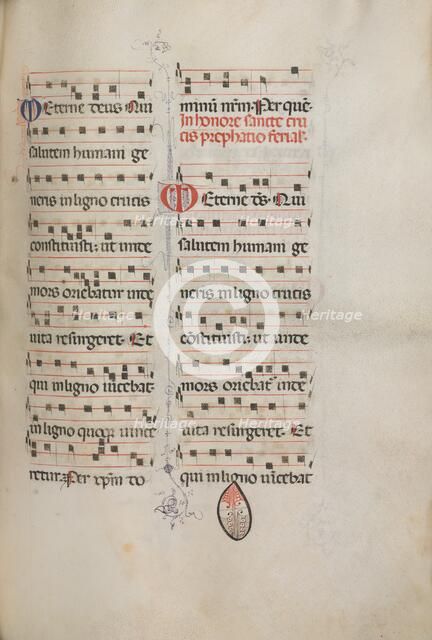 Eterne deus Qui
salutem humani ge
neris in ligno crucis
constituisti: ut unde
mors oriebatur inde
uita resurgeret. Et
qui in ligno uicebat
in ligno quoqȝ uince
retur. Per xp̄m do
minū nr̄m. Per quē.
In honore sancte cru
cis prephatio ferial'.
Eterne ds̄. Qui
salutem humani ge
neris in ligno crucis
cōstituisti: ut unde
mors oriebat' inde
uita resurgeret. Et
qui in ligno uīcebat
Heritage
Heritage
Heritage
Heritage
Heritage
Heritage